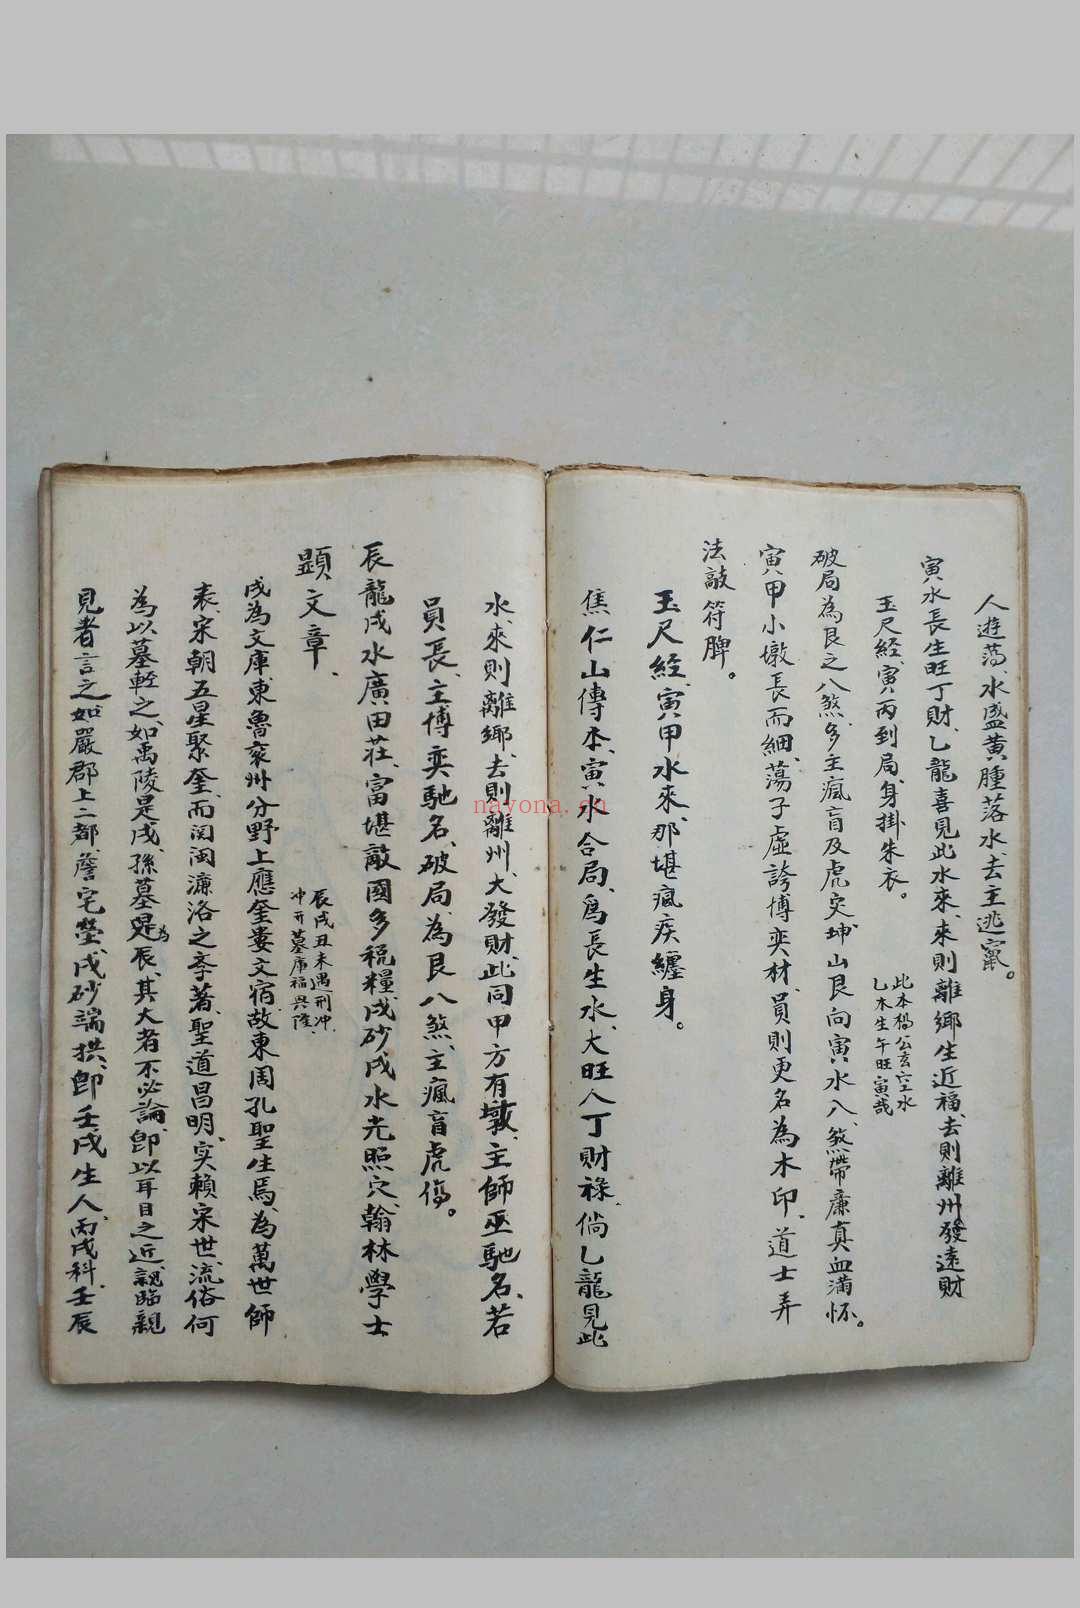 人遊蕩、水盛黄腫落水、去主逃竄。
寅水長生旺丁財、乙龍喜見此水來、來則離鄉生近福、去則離州發遠財
玉尺經、寅丙到局、身掛朱衣。
此本楊公玄空水
乙木生午旺寅哉
破局為艮之八煞、多主瘋盲及虎災、坤山艮向寅水八、煞帶廉真血满怀。
寅甲小墩長而細、蕩子虛誇博奕材、員則更名為木印、道士弄
法敲符牌。
玉尺經、寅甲水來、那堪瘋疾纏身。
焦仁山傳本、寅水合局、爲長生水、大旺人丁財祿、倘乙龍見此
水、來則離鄉、去則離州、大發財、此同甲方有墩、主師巫馳名、若
員長、主博奕馳名、破局、為艮八煞、主瘋盲虎傷。
辰龍戌水廣田莊、富堪敵國多税糧、戌砂戌水光照穴、翰林學士
顕文章、
辰戌丑未遇刑冲、
冲开墓庫福兴隆、
戌為文庫、東魯兖州分野、上應奎婁文宿、故東周孔聖生焉、為萬世師
表、宋朝五星聚奎、而関閩濂洛之亭著、聖道昌明、实賴宋世、流俗何
為以墓輕之、如禹陵是戌、孫墓是為辰、其大者不必論、即以耳目之近、親臨親
見者言之、如嚴郡上二都、詹宅塋、戌砂端拱、即壬戌生人、丙戌科、壬辰
nayona.cn